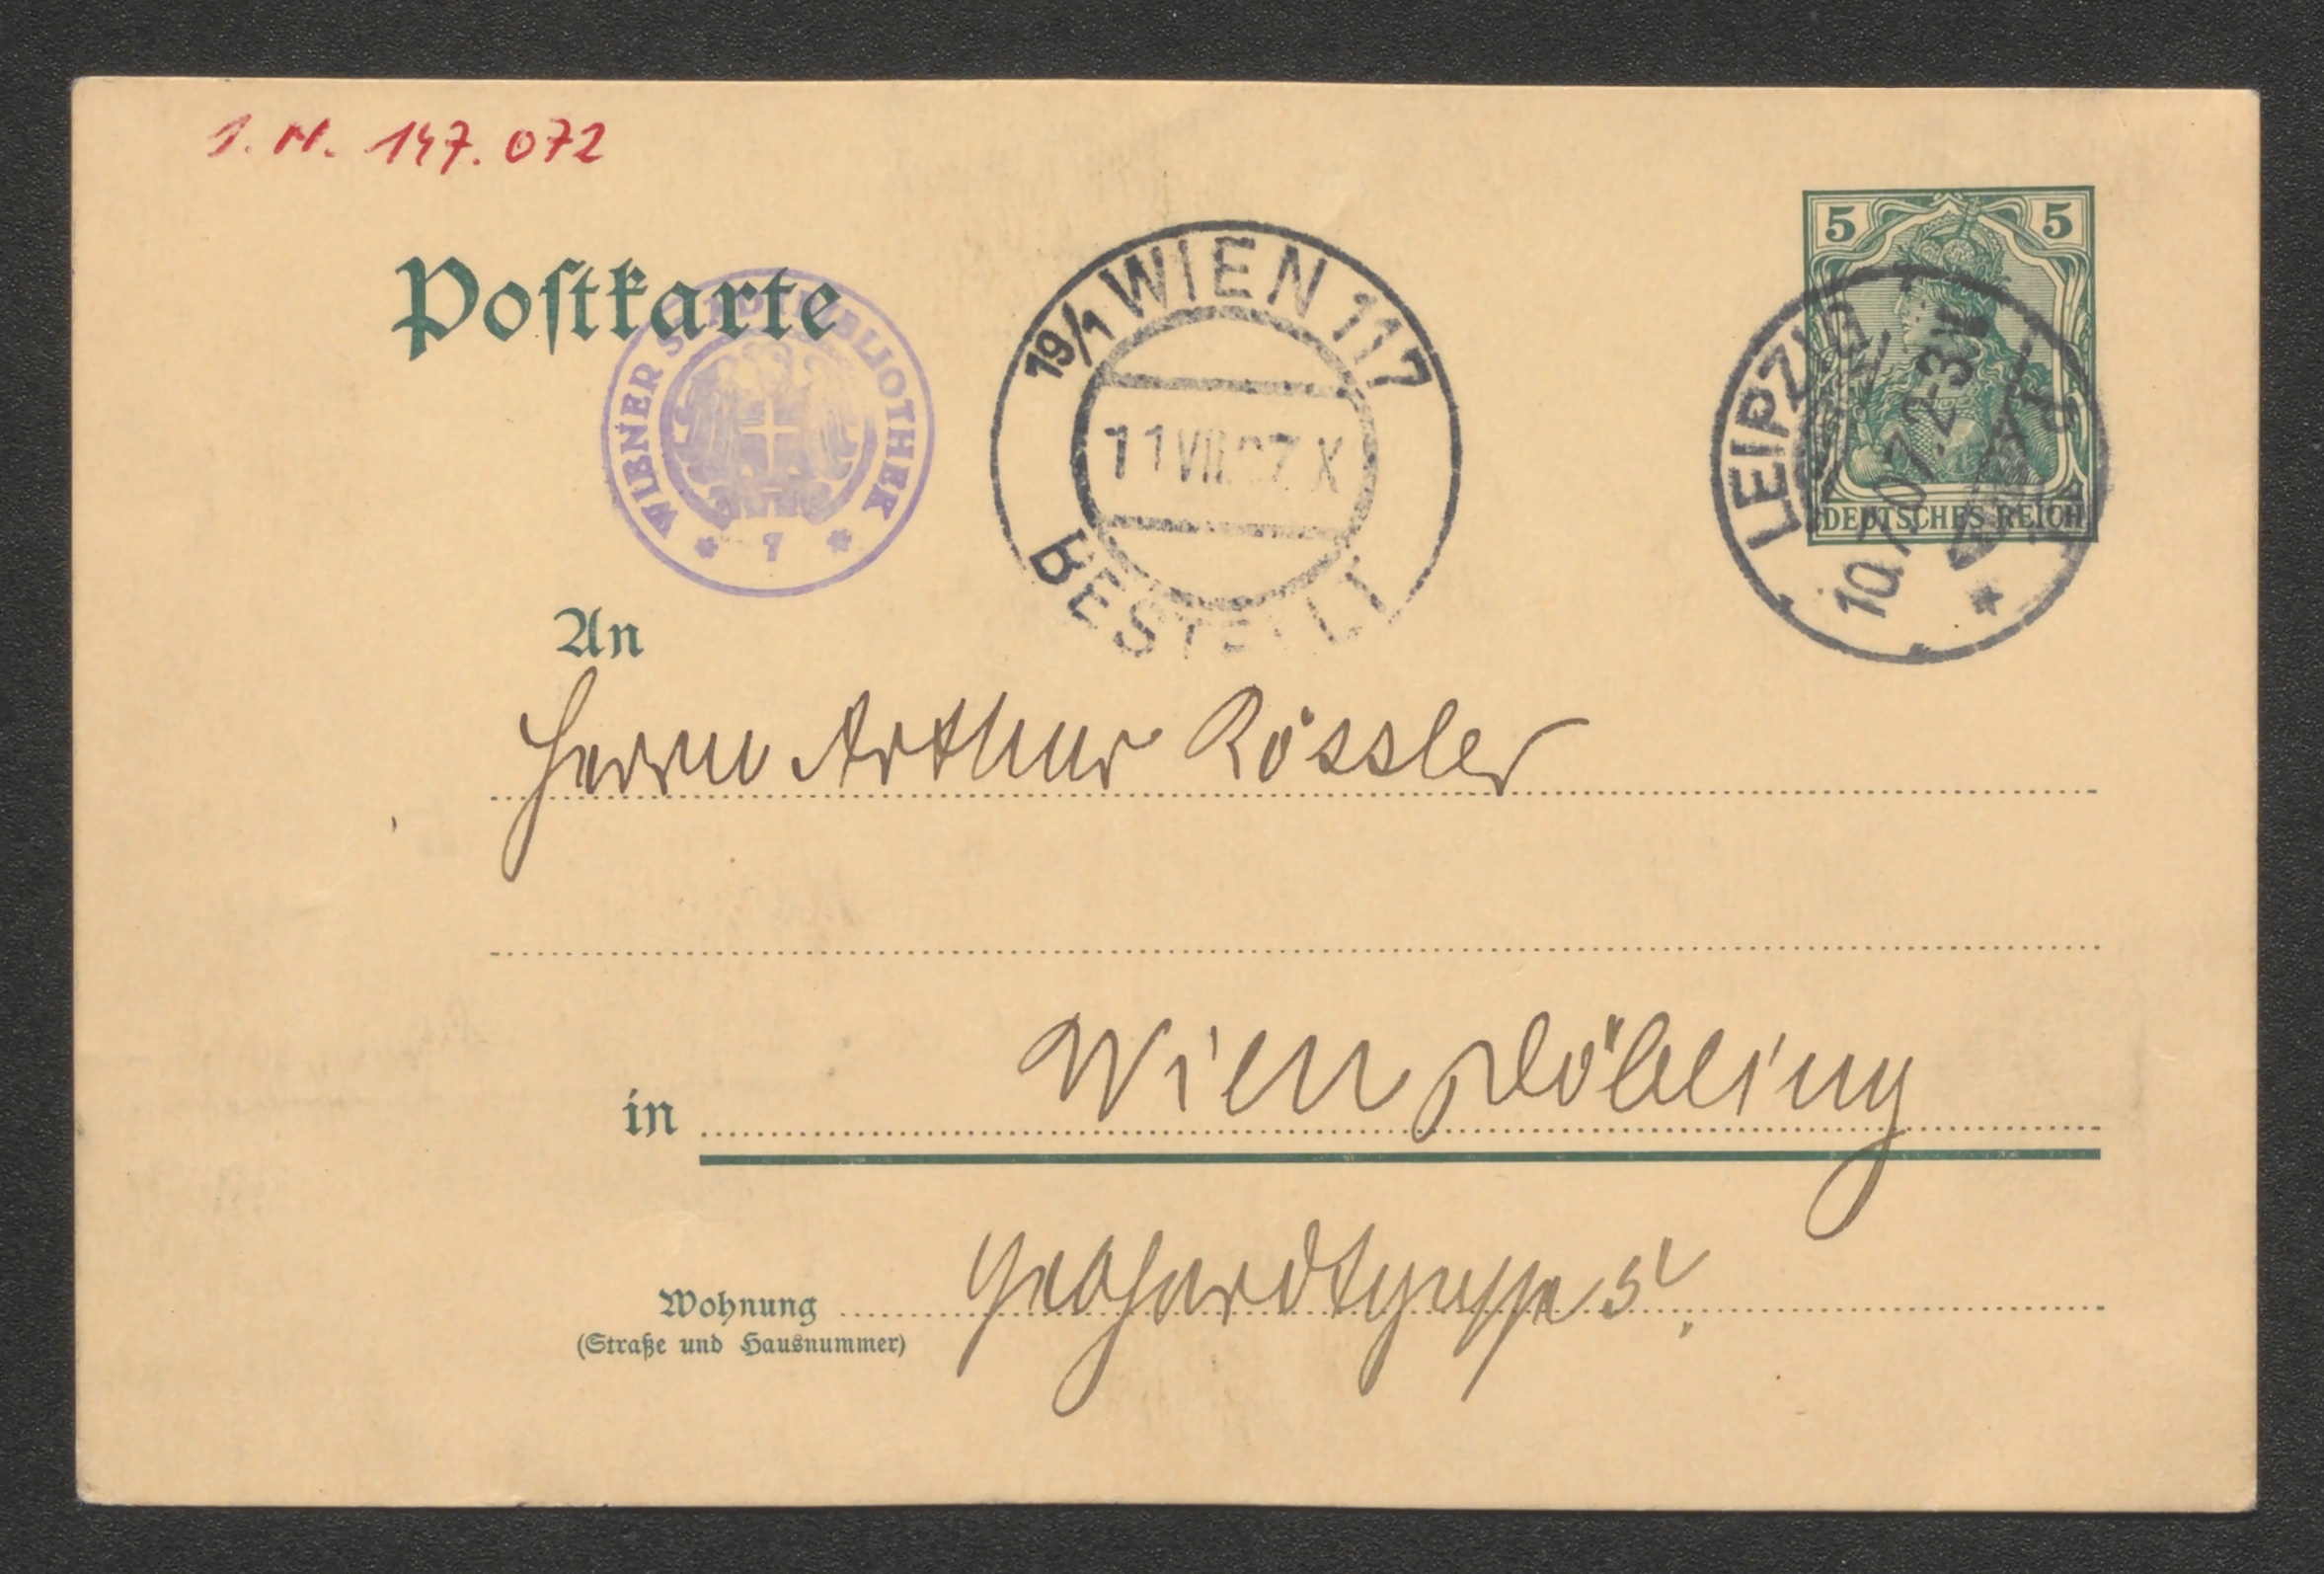 I. N. 147.072
Postkarte
WIENER STADTBIBLIOTHEK
* 7 *
19/1 WIEN 117
11 VII 07 X
BESTELLT
5 5
DEUTSCHES REICH
LEIPZIG
10.7.07.2-3N
*
An
Herrn Arthur Rössler
in Wien Döbling
Wohnung Gebhardtgasse 5.
(Straße und Hausnummer)